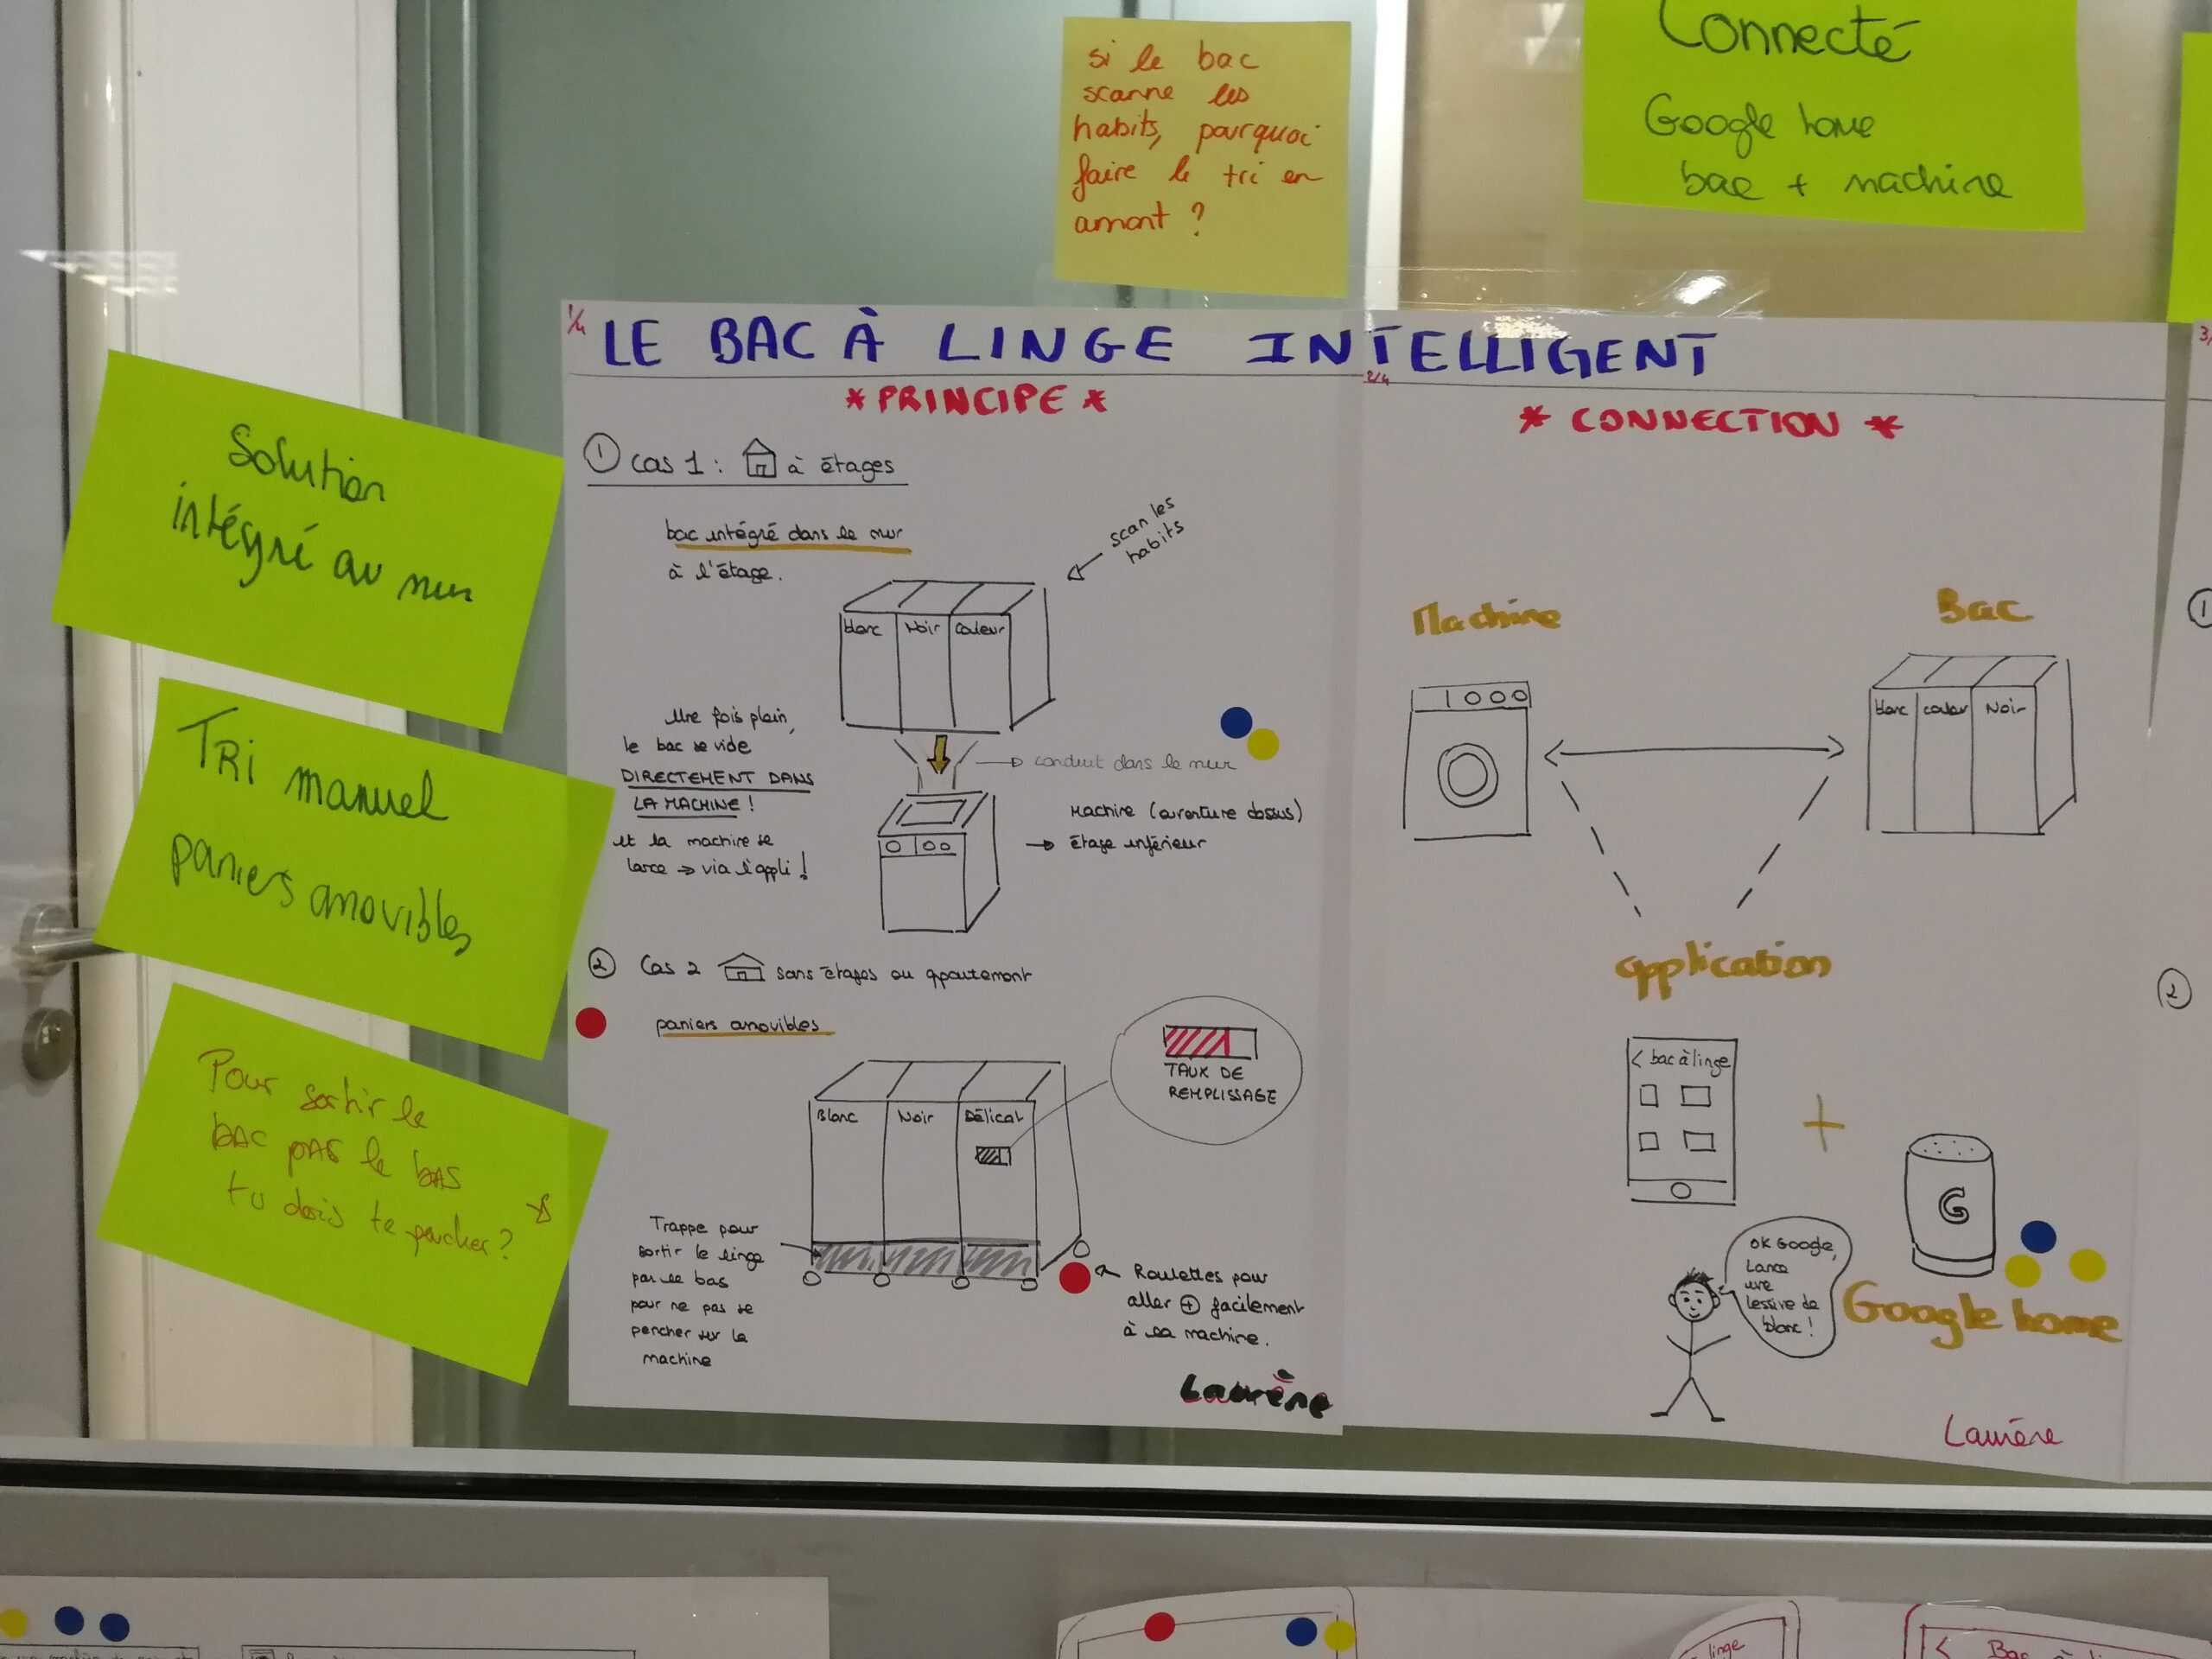 si le bac
scanne les
habits, pourquoi
faire le tri en
amont ?
Connecté
Google home
bac + machine
Solution
intégré au mur
TRi manuel
paniers amovibles
Pour sortir le
bac pas le bas
tu dois te pencher ?
1/4
LE BAC À LINGE INTELLIGENT
* PRINCIPE *
① cas 1 : à étages
bac intégré dans le mur
à l'étage.
scan les
habits
blanc Noir Couleur
Une fois plein,
le bac se vide
DIRECTEMENT DANS
LA MACHINE !
et la machine se
lance → via l'appli !
→ conduit dans le mur
Machine (ouverture dessus)
→ étage inférieur
② Cas 2 sans étages ou appartement
paniers amovibles
TAUX DE
REMPLISSAGE
Blanc Noir Délicat
Trappe pour
sortir le linge
par le bas
pour ne pas se
pencher sur la
machine
Roulettes pour
aller ⊕ facilement
à sa machine.
Laurène
2/4
* CONNECTION *
Machine
Bac
blanc couleur Noir
application
< bac à linge
+
G
OK Google,
Lance
une
lessive de
blanc !
Google home
Laurène
3/
①
②
linge
< Bac à li